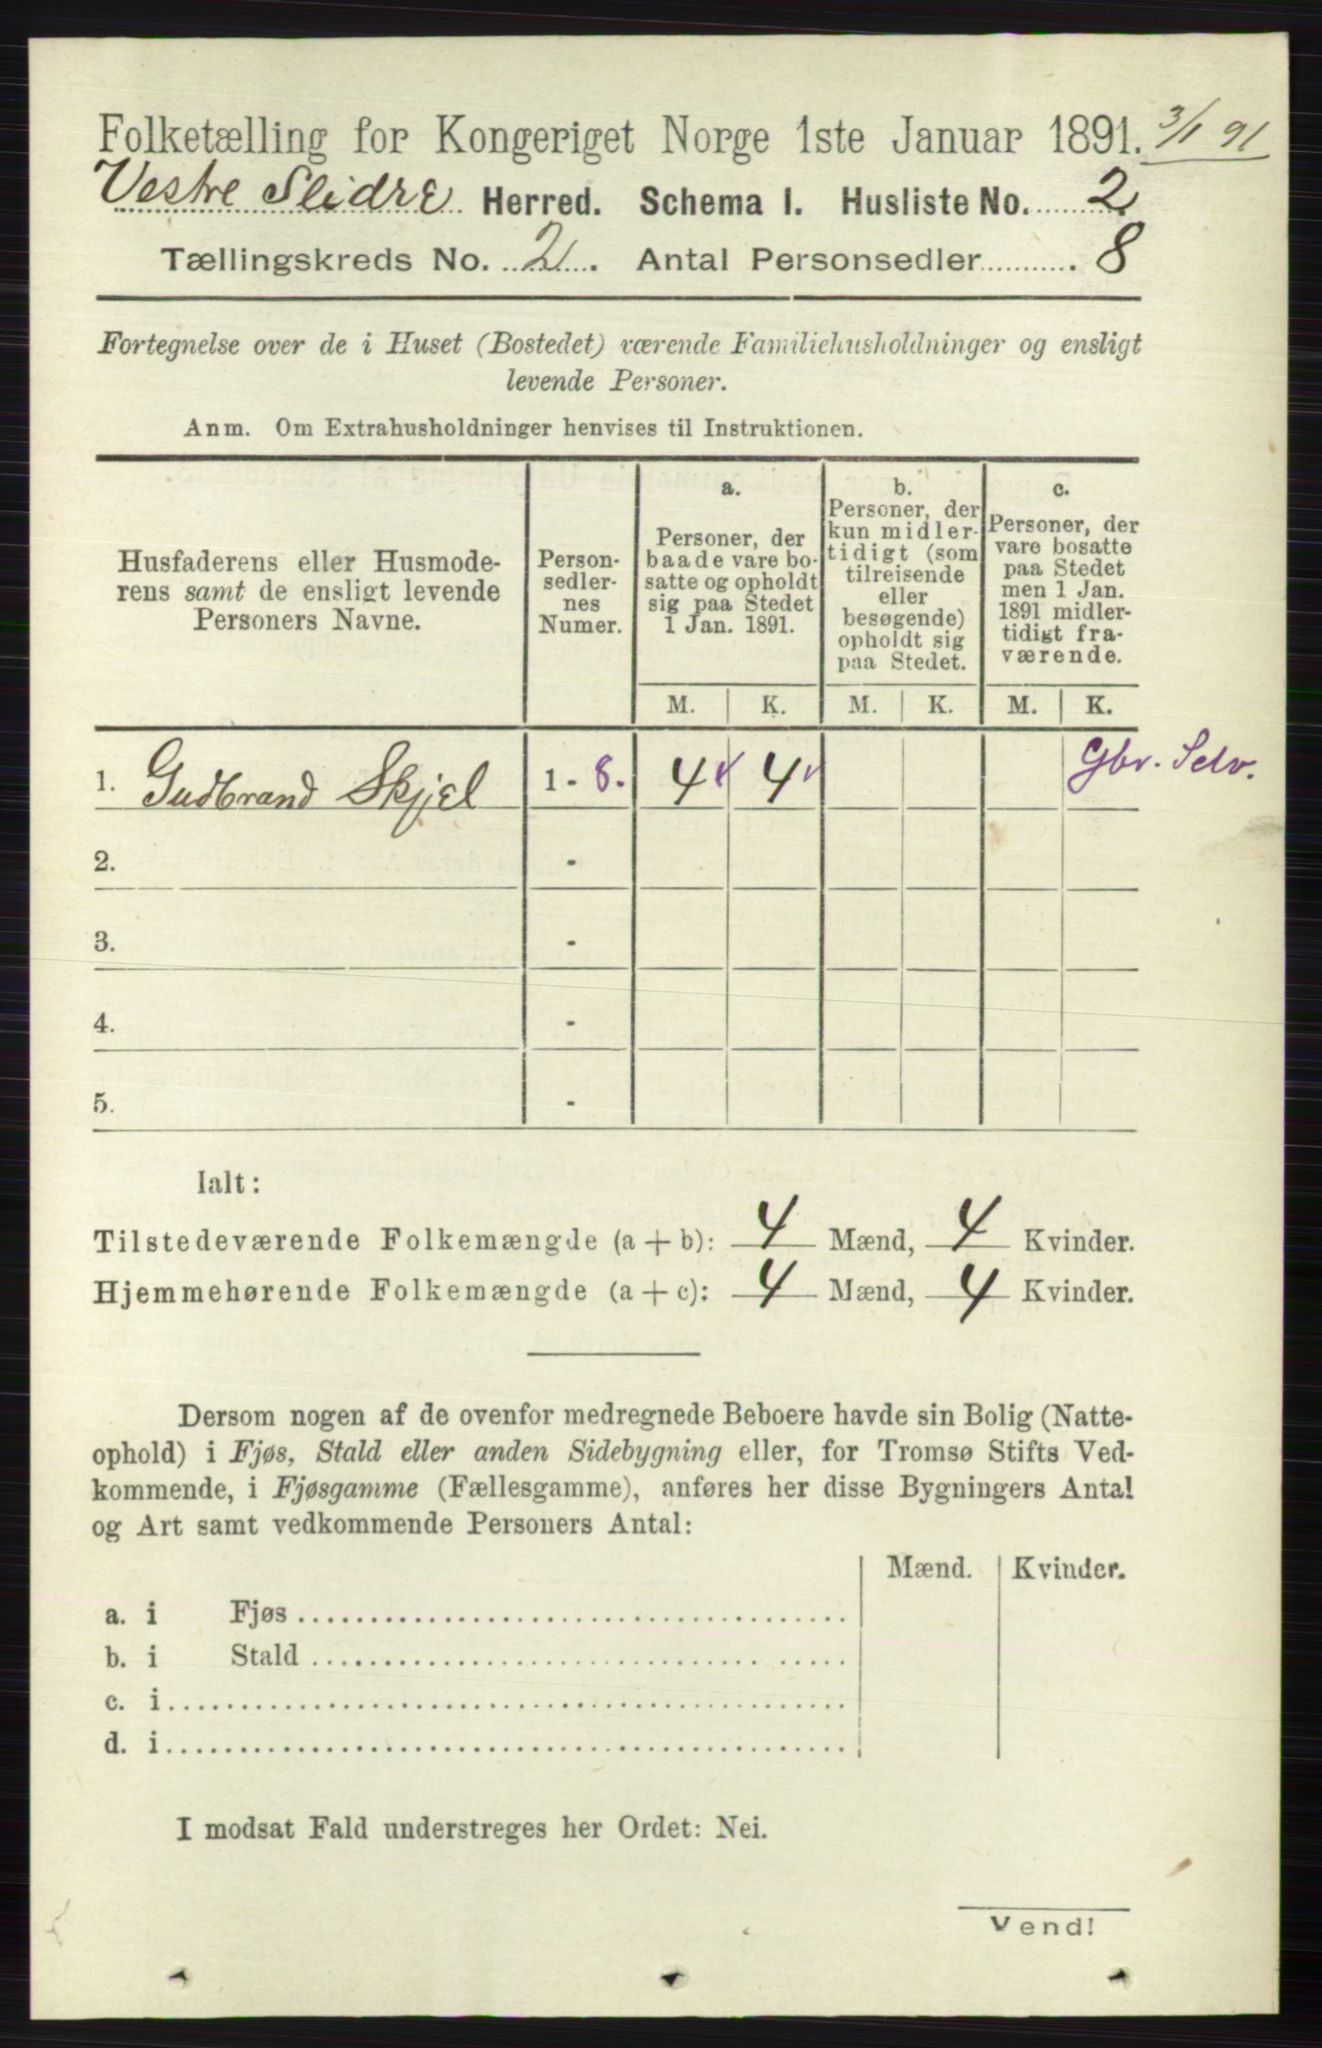 Folketælling for Kongeriget Norge 1ste Januar 1891. 3/1 91
Vestre Slidre Herred. Schema I. Husliste No. 2
Tællingskreds No. 2. Antal Personsedler 8
Fortegnelse over de i Huset (Bostedet) værende Familiehusholdninger og ensligt
levende Personer.
Anm. Om Extrahusholdninger henvises til Instruktionen.
Husfaderens eller Husmode-
rens samt de ensligt levende
Personers Navne.
Person-
sedler-
nes
Numer.
a.
Personer, der
baade vare bo-
satte og opholdt
sig paa Stedet
1 Jan. 1891.
b.
Personer, der
kun midler-
tidigt (som
tilreisende
eller
besøgende)
opholdt sig
paa Stedet.
c.
Personer, der
vare bosatte
paa Stedet
men 1 Jan.
1891 midler-
tidigt fra-
værende.
M. K. M. K. M. K.
1. Gudbrand Skjel 1 - 8. 4 4 Gbr. Selv.
2. -
3. -
4. -
5. -
Ialt:
Tilstedeværende Folkemængde (a + b): 4 Mænd, 4 Kvinder.
Hjemmehørende Folkemængde (a + c): 4 Mænd, 4 Kvinder.
Dersom nogen af de ovenfor medregnede Beboere havde sin Bolig (Natte-
ophold) i Fjøs, Stald eller anden Sidebygning eller, for Tromsø Stifts Ved-
kommende, i Fjøsgamme (Fællesgamme), anføres her disse Bygningers Antal
og Art samt vedkommende Personers Antal:
Mænd. Kvinder.
a. i Fjøs
b. i Stald
c. i
d. i
I modsat Fald understreges her Ordet: Nei.
Vend!